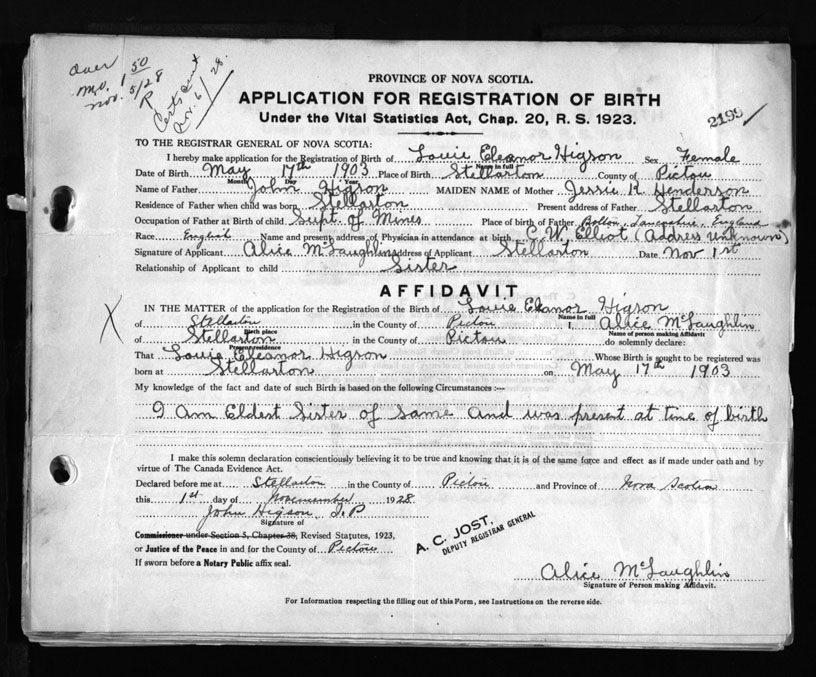 Over
M.O. 1 50
Nov. 5/28
R
Certs sent
Nov. 6/28.
PROVINCE OF NOVA SCOTIA.
APPLICATION FOR REGISTRATION OF BIRTH
Under the Vital Statistics Act, Chap. 20, R. S. 1923.
2199
TO THE REGISTRAR GENERAL OF NOVA SCOTIA:
I hereby make application for the Registration of Birth of Louie Eleanor Higson Sex Female
Name in full
Date of Birth May 17th 1903 Place of Birth Stellarton County of Pictou
Month Day Year
Name of Father John Higson MAIDEN NAME of Mother Jessie R Henderson
Residence of Father when child was born Stellarton Present address of Father Stellarton
Occupation of Father at Birth of child Supt. of Mines Place of birth of Father Bolton, Lancashire, England
Race English Name and present address of Physician in attendance at birth C. W. Elliot (Address unknown)
Signature of Applicant Alice McLaughlin Address of Applicant Stellarton Date Nov 1st
Relationship of Applicant to child Sister
AFFIDAVIT
X
IN THE MATTER of the application for the Registration of the Birth of Louie Eleanor Higson
Name in full
of Stellarton in the County of Pictou I, Alice McLaughlin
Birth place Name of person making Affidavit
of Stellarton in the County of Pictou do solemnly declare:
Present residence
That Louie Eleanor Higson Whose Birth is sought to be registered was
born at Stellarton on May 17th 1903
My knowledge of the fact and date of such Birth is based on the following Circumstances :—
I Am Eldest Sister of same and was present at time of birth
I make this solemn declaration conscientiously believing it to be true and knowing that it is of the same force and effect as if made under oath and by
virtue of The Canada Evidence Act.
Declared before me at Stellarton in the County of Pictou and Province of Nova Scotia
this 1st day of Novemember 1928
John Higson J.P
Signature of
Commissioner under Section 5, Chapter 38, Revised Statutes, 1923,
or Justice of the Peace in and for the County of Pictou
If sworn before a Notary Public affix seal.
A. C. JOST,
DEPUTY REGISTRAR GENERAL
Alice McLaughlin
Signature of Person making Affidavit.
For Information respecting the filling out of this Form, see Instructions on the reverse side.